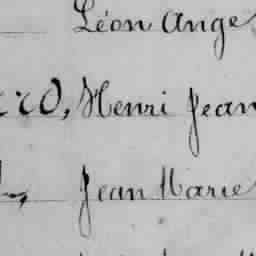 Léon Ange
Henri Jean
Jean Marie